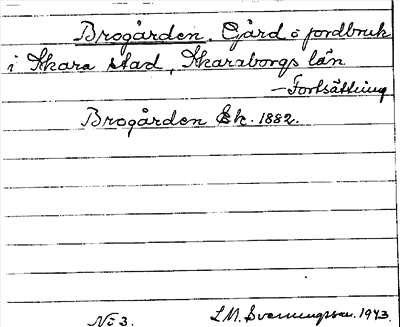 Brogården. Gård o jordbruk
i Skara stad, Skaraborgs län
- Fortsättning
Brogården Ek. 1882.
NE 3. L.M. Svenungsson. 1943.